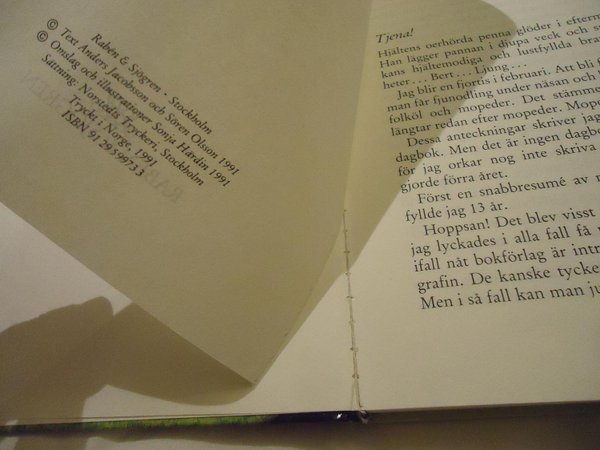 Rabén & Sjögren . Stockholm
© Text Anders Jacobsson och Sören Olsson 1991
© Omslag och illustrationer Sonja Härdin 1991
Sättning: Norstedts Tryckeri, Stockholm
Tryckt i Norge, 1991
ISBN 91 29 59973 3
Tjena!
Hjältens oerhörda penna glöder i
Han lägger pannan i djupa veck och
kans hjältemodiga och lustfyllda
heter... Bert... Ljung...
Jag blir en fjortis i februari. Att bli
man får fjunodling under näsan och
folköl och mopeder. Det stämme
längtar redan efter mopeder.
Dessa anteckningar skriver jag
dagbok. Men det är ingen
för jag orkar nog inte skriva
gjorde förra året.
Först en snabbresumé av
fyllde jag 13 år.
Hoppsan! Det blev visst
jag lyckades i alla fall få
ifall nåt bokförlag är
grafin. De kanske
Men i så fall kan man